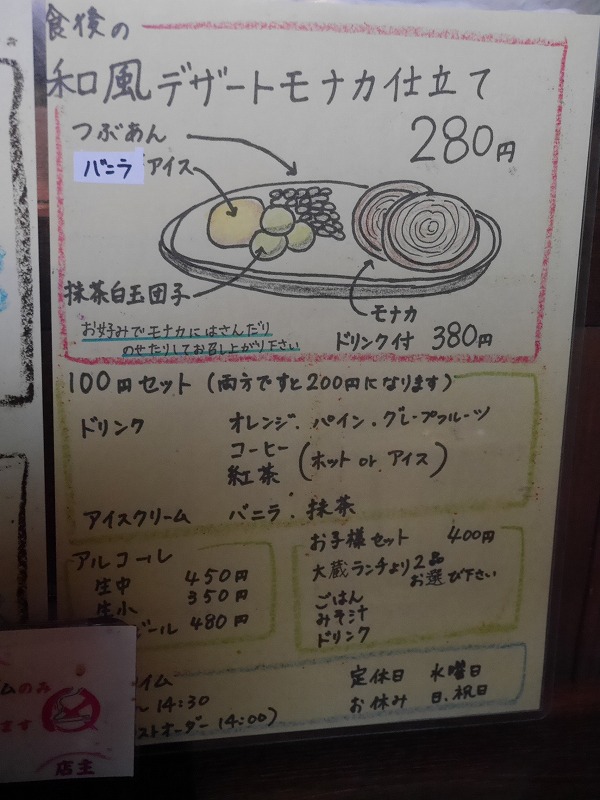 食後の
和風デザートモナカ仕立て
280円
つぶあん
バニラアイス
抹茶白玉団子
モナカ
お好みでモナカにはさんだり
のせたりしてお召し上がり下さい
ドリンク付 380円
100円セット (両方ですと200円になります)
ドリンク オレンジ・パイン・グレープフルーツ
コーヒー
紅茶
(ホット or アイス)
アイスクリーム バニラ・抹茶
アルコール
生中 450円
生小 350円
ビール 480円
お子様セット 400円
大蔵ランチより2品
お選び下さい
ごはん
みそ汁
ドリンク
イム
~14:30
ストオーダー 14:00)
定休日 水曜日
お休み 日、祝日
ムのみ
ます
店主